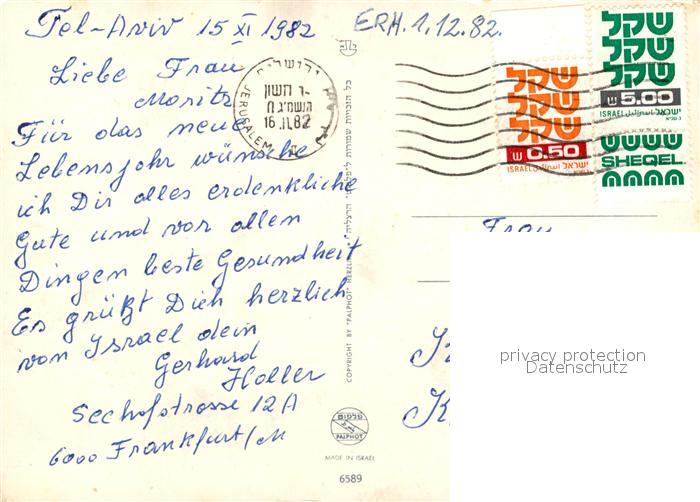 Tel-Aviv 15 XI 1982
ERH. 1.12.82.
Liebe Frau
Moritz
Für das neue
Lebensjahr wünsche
ich Dir alles erdenkliche
Gute und vor allen
Dingen beste Gesundheit
Es grüßt Dich herzlich
von Israel dein
Gerhard
Holler
Seehofstrasse 12A
6000 Frankfurt/M
ירושלים
חשון
התשמ"ג
16.11.82
JERUSALEM
כל הזכויות שמורות לפלפוט הרצליה
COPYRIGHT BY "PALPHOT" HERZLIA
פלפוט
PALPHOT
MADE IN ISRAEL
6589
שקל
שקל
שקל
0.50
ISRAEL اسرائيل ישראל
שקל
שקל
שקל
5.00
ISRAEL اسرائيل ישראל
SHEQEL
Frau
K
privacy protection
Datenschutz